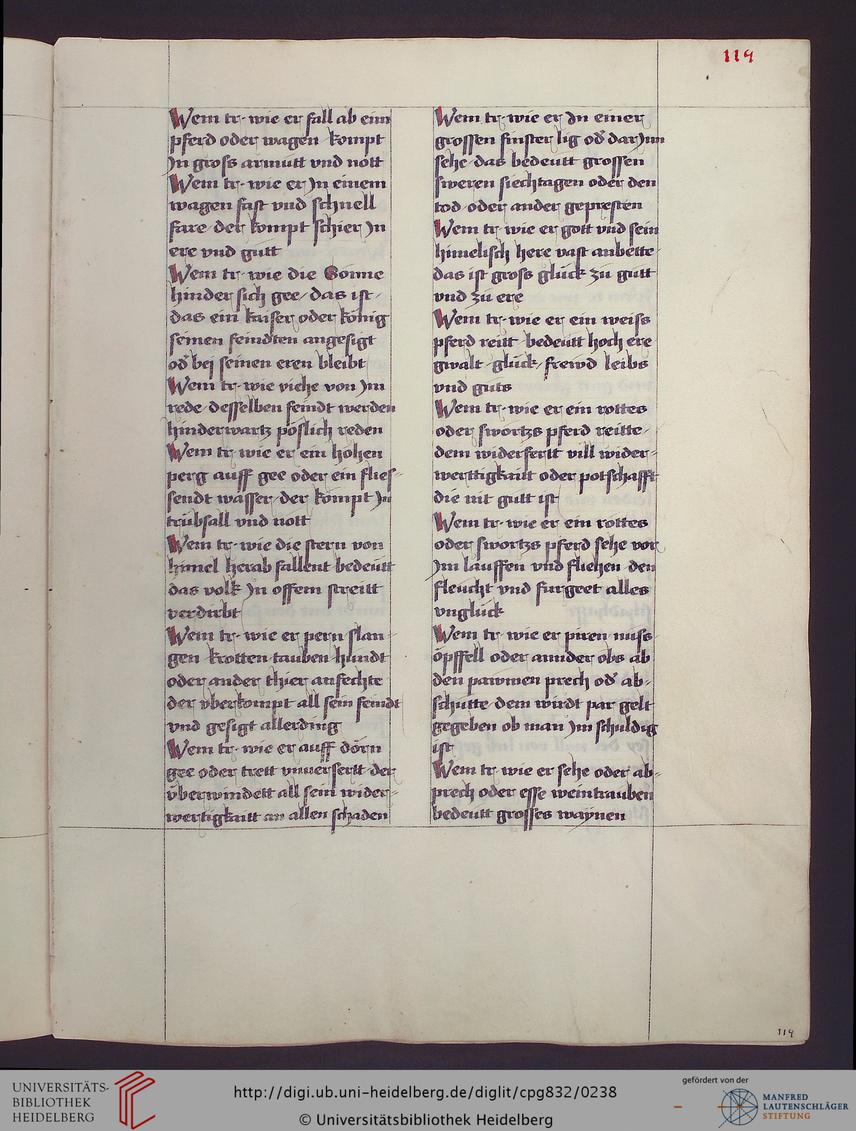 119
Wem tr· wie er fall ab eim
pferd oder wagen kompt
Jn gross armutt vnd nott
Wem tr· wie er Jn einem
wagen fast vnd schnell
fare· der kompt schier Jn
ere vnd gutt
Wem tr· wie die Sonne
hinder sich gee· das ist·
das ein kaiser oder konig
seinen feindten angesigt
od bej seinen eren bleibt
Wem tr· wie viche von Jm
rede· desselben feindt werden
hinderwartz pöslich reden
Wem tr· wie er ein hohen
perg auff gee oder ein flies-
sendt wasser· der kompt Jn
trübsall vnd nott
Wem tr· wie die stern von
himel herab fallent bedeutt
das volk Jn offem streitt
verdirbt
Wem tr· wie er pern slan-
gen· krotten· tauben· hundt
oder ander thier anfechte
der vberkompt all sein feindt
vnd gesigt allerding
Wem tr· wie er auff dörn
gee oder trett vnuersertt der
überwindett all sein wider-
wertigkaitt an allen schaden
Wem tr· wie er Jn einer
grossen finster lig od darJnn
sehe· das bedeutt grossen
sweren siechtagen oder den
tod· oder ander gepresten
Wem tr· wie er gott vnd sein
himelisch here vast anbette·
das ist gross glück zu gutt
vnd zu ere
Wem tr· wie er ein weiss
pferd reitt· bedeutt hoch ere
gwalt· glück· frewd leibs
vnd guts
Wem tr· wie er ein rottes
oder swortzs pferd reitte·
dem widerfertt vill wider-
werttigkaitt oder potschafft
die nit gutt ist
Wem tr· wie er ein rottes
oder swortzs pferd sehe vor
Jm lauffen vnd fliehen· den
fleucht vnd furgeet alles
vnglück
Wem tr· wie er piren· nuss·
öpffell oder annder obs ab
den pawmen prech od ab-
schutte· dem wirdt par gelt
gegeben ob man Jm schuldig
ist
Wem tr· wie er sehe oder ab-
prech oder esse weintrauben
bedeutt grosses waynen
119
UNIVERSITÄTS-
BIBLIOTHEK
HEIDELBERG
http://digi.ub.uni-heidelberg.de/diglit/cpg832/0238
© Universitätsbibliothek Heidelberg
gefördert von der
MANFRED
LAUTENSCHLÄGER
STIFTUNG